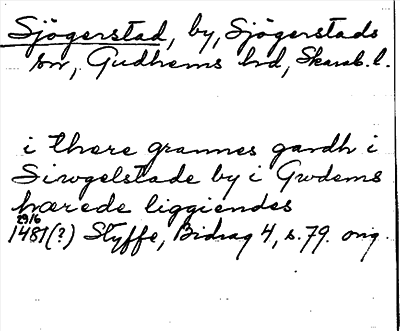 Sjögerstad, by, Sjögerstads
sn, Gudhems hd, Skarab. l.
i there grannes gardh i
Siwgelstade by i Gwdems
hærede liggiendes
29/6
1481(?) Styffe, Bidrag 4, s. 79. orig.